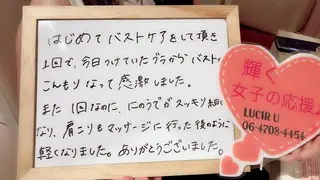 はじめて バストケアをして頂き
1回で、今日つけていたブラからバストが
こんもりなって感激しました。
また 1回なのに、にのうでがスッキリ細く
なり、肩こりもマッサージに行った後のように
軽くなりました。ありがとうございました。
輝く
女子の応援
LUCIR U
06-4708-4454